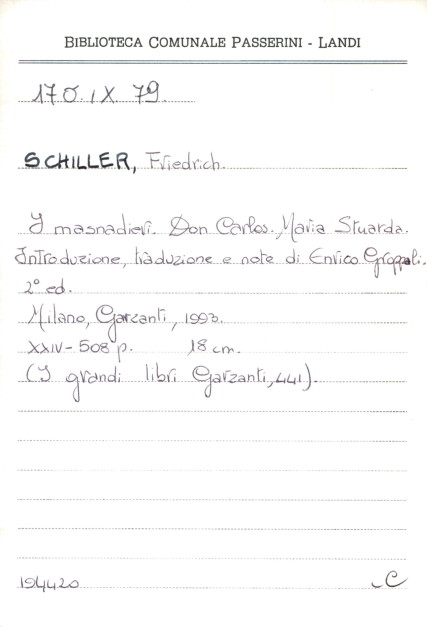 BIBLIOTECA COMUNALE PASSERINI - LANDI
17O. IX. 79.
SCHILLER, Friedrich.
I masnadieri. Don Carlos. Maria Stuarda.
Introduzione, traduzione e note di Enrico Groppali.
2° ed.
Milano, Garzanti, 1993.
XXIV - 508 p. 18 cm.
(I grandi libri Garzanti, 441).
194420 C